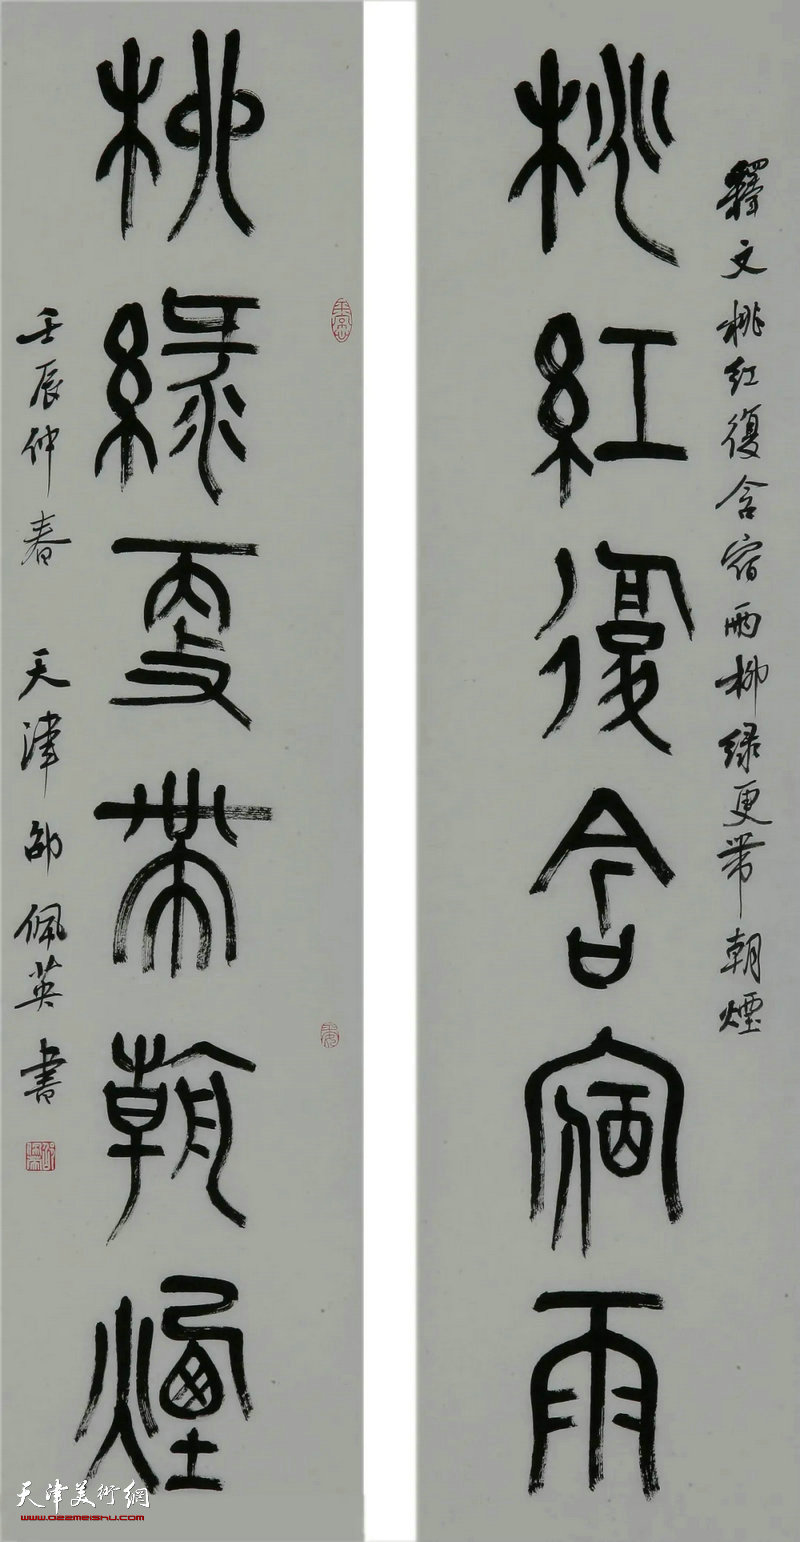 釋文桃红復含宿雨柳绿更帶朝煙
桃紅復含宿雨
柳綠更帶朝煙
壬辰仲春 天津邵佩英書
天津美術網
www.022meishu.com